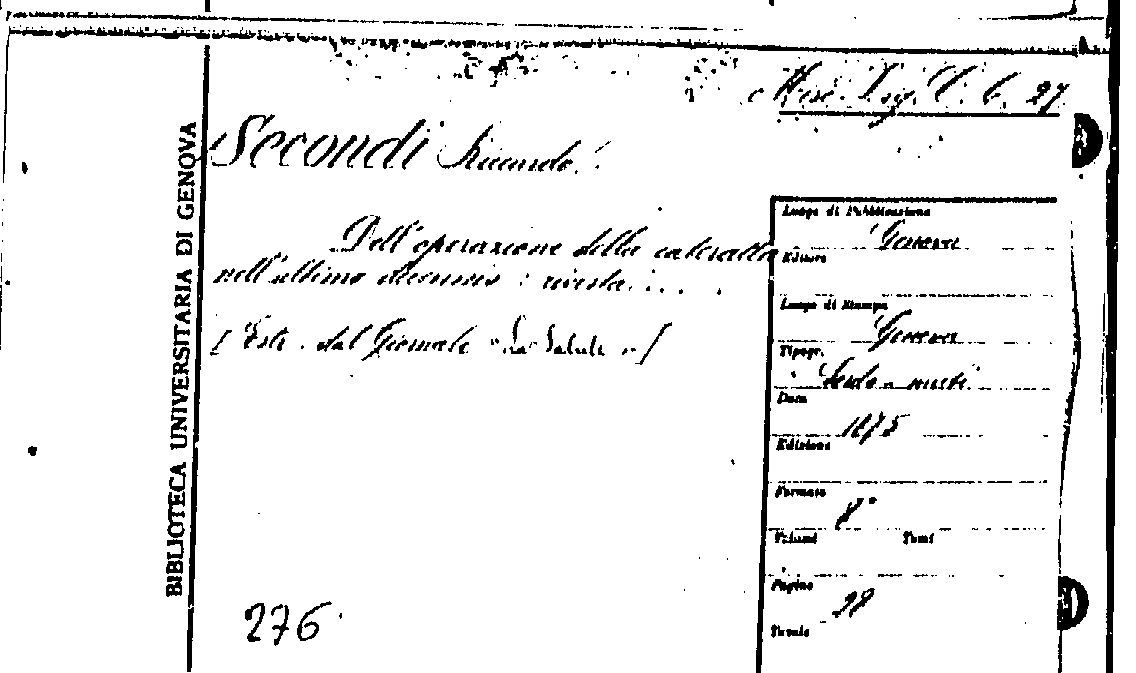 Misc. Lig. C. 6. 27
BIBLIOTECA UNIVERSITARIA DI GENOVA
Secondi Riccardo.
Dell'operazione della cateratta
nell'ultimo decennio : rivista....
[Estr. dal Giornale "La Salute"]
276
Luogo di Pubblicazione
Genova
Editore
Luogo di Stampa
Genova
Tipogr.
Sordo-muti
Data
1875
Edizione
Formato
8°
Volumi Tomi
Pagine
28
Tavole